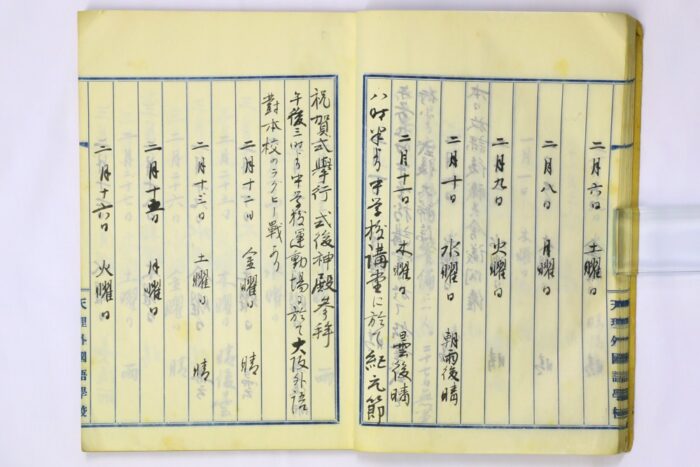 二月六日 土曜日
二月八日 月曜日
二月九日 火曜日
二月十日 水曜日 朝雨後晴
二月十一日 木曜日 曇後晴
八時半より中学校講堂に於て紀元節
祝賀式擧行 式後神殿参拝
午後三時より中学校運動場に於て大阪外語
對本校のラグビー戦あり
二月十二日 金曜日 晴
二月十三日 土曜日 晴
二月十五日 月曜日
二月十六日 火曜日
天理外國語學校
天理外國語學校